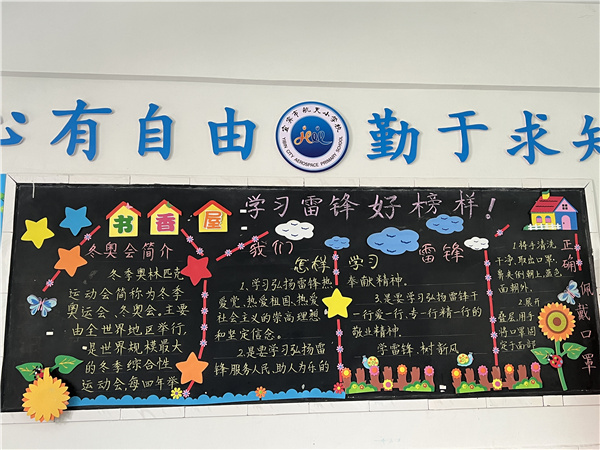 心有自由
勤于求知
宜宾市航天小学校
YIBIN CITY AEROSPACE PRIMARY SCHOOL
学习雷锋好榜样!
书香屋
冬奥会简介
冬季奥林匹克
运动会简称为冬季
奥运会、冬奥会,主要
由全世界地区举行,
是世界规模最大
的冬季综合性
运动会,每四年举
我们
怎样
学习
雷锋
1.学习弘扬雷锋热
爱党、热爱祖国、热爱
社会主义的崇高理想
和坚定信念。
2.是要学习弘扬雷
锋服务人民、助人为乐的
奉献精神。
3.是要学习弘扬雷锋干
一行爱一行、专一行精一行的
敬业精神。
学雷锋,树新风
正确
佩戴口罩
1.将手清洗
干净,取出口罩,
鼻夹侧朝上,蓝色
面朝外。
2.展开
叠层,用手
将口罩固
定于面部